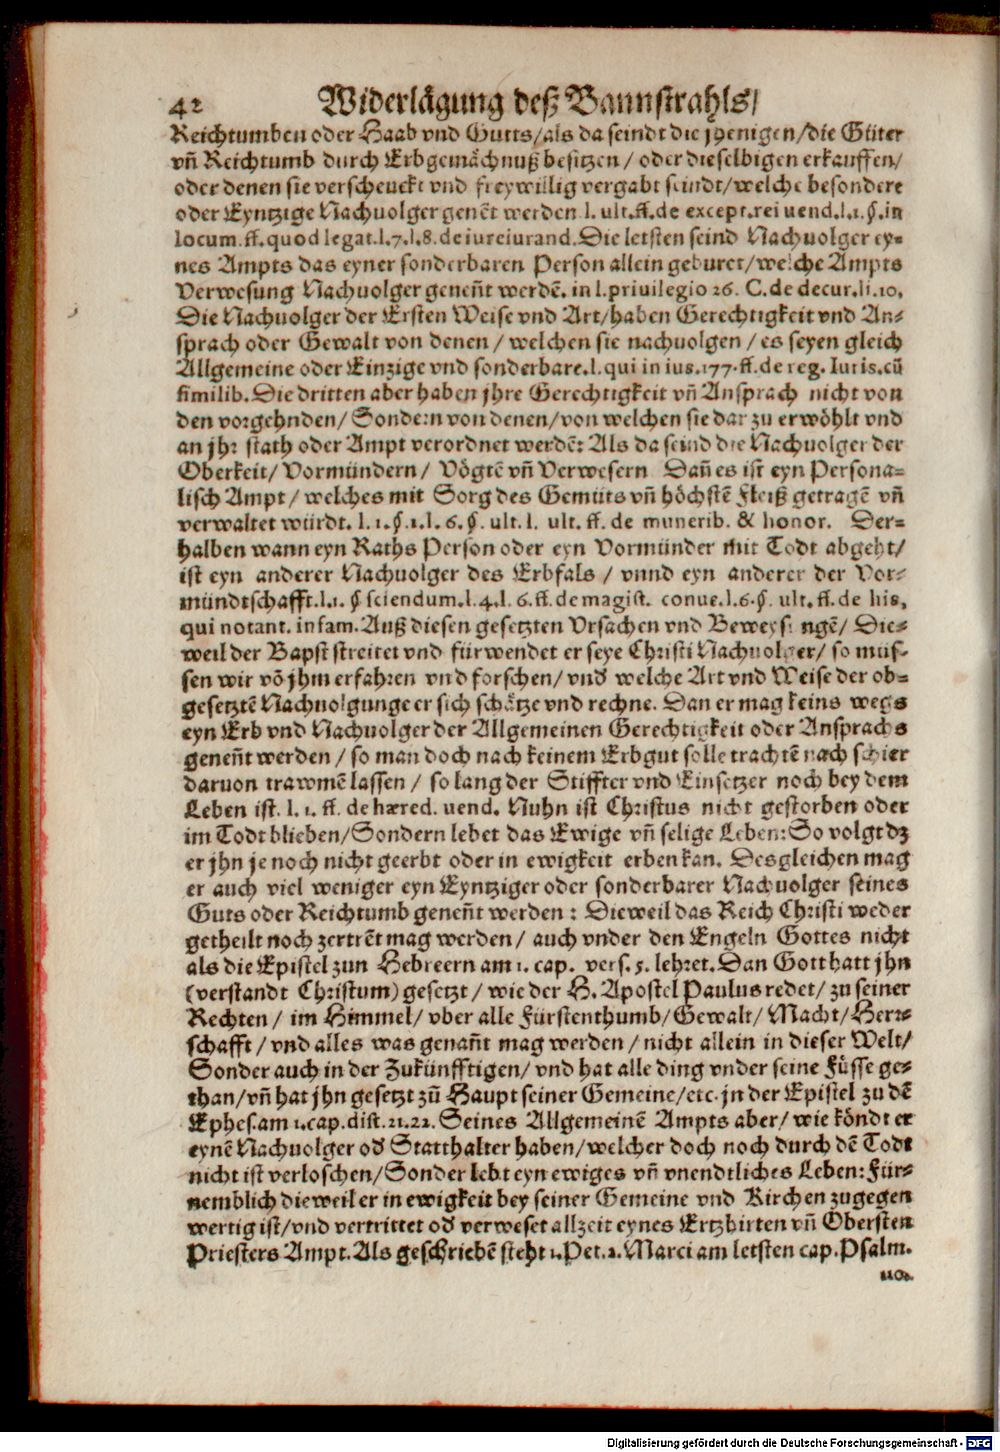 42 Widerlägung deß Bannstrahls/
Reichtumben oder Haab vnd Gutts/als da seindt die jhenigen/die Güter
vñ Reichtumb durch Erbgemächnuß besitzen / oder dieselbigen erkauffen/
oder denen sie verschenckt vnd freywillig vergabt seindt/welche besondere
oder Eyntzige Nachuolger genẽt werden l. ult.ff.de except.rei uend.l.1.§.in
locum.ff.quod legat.l.7.l.8.de iureiurand.Die letsten seind Nachuolger ey-
nes Ampts das eyner sonderbaren Person allein geburet/welche Ampts
Verwesung Nachuolger geneñt werdẽ. in l.priuilegio 26. C.de decur.li.10.
Die Nachuolger der Ersten Weise vnd Art/haben Gerechtigkeit vnd An-
sprach oder Gewalt von denen / welchen sie nachuolgen / es seyen gleich
Allgemeine oder Einzige vnd sonderbare.l.qui in ius.177.ff.de reg. Iuris.cũ
similib.Die dritten aber haben jhre Gerechtigkeit vñ Ansprach nicht von
den vorgehnden/Sondern von denen/von welchen sie dar zu erwöhlt vnd
an jhr stath oder Ampt verordnet werdẽ: Als da seind die Nachuolger der
Oberkeit/Vormündern/ Vögtẽ vñ Verwesern Dañ es ist eyn Persona-
lisch Ampt/welches mit Sorg des Gemüts vñ höchstẽ Fleiß getragẽ vñ
verwaltet würdt. l. 1.§.1.l. 6.§. ult.l. ult. ff. de munerib. & honor. Der-
halben wann eyn Raths Person oder eyn Vormünder mit Todt abgeht/
ist eyn anderer Nachuolger des Erbfals / vnnd eyn anderer der Vor-
mündtschafft.l.1. § sciendum.l.4.l. 6.ff.de magist. conue.l.6.§. ult.ff.de his,
qui notant. infam.Auß diesen gesetzten Vrsachen vnd Beweysungẽ/ Die-
weil der Bapst streitet vnd fürwendet er seye Christi Nachuolger/ so müs-
sen wir võ jhm erfahren vnd forschen/vnd welche Art vnd Weise der ob-
gesetztẽ Nachuolgunge er sich schätze vnd rechne. Dan er mag keins wegs
eyn Erb vnd Nachuolger der Allgemeinen Gerechtigkeit oder Ansprachs
geneñt werden / so man doch nach keinem Erbgut solle trachtẽ nach schier
daruon trawmẽ lassen / so lang der Stiffter vnd Einsetzer noch bey dem
Leben ist. l. 1. ff. de hæred. uend. Nuhn ist Christus nicht gestorben oder
im Todt blieben/Sondern lebet das Ewige vñ selige Leben:So volgt dz
er jhn je noch nicht geerbt oder in ewigkeit erben kan. Desgleichen mag
er auch viel weniger eyn Eyntziger oder sonderbarer Nachuolger seines
Guts oder Reichtumb geneñt werden : Dieweil das Reich Christi weder
getheilt noch zertrẽt mag werden / auch vnder den Engeln Gottes nicht
als die Epistel zun Hebreern am 1. cap. vers. 5. lehret.Dan Gott hatt jhn
(verstandt Christum) gesetzt / wie der H. Apostel Paulus redet/ zu seiner
Rechten / im Himmel/ vber alle Fürstenthumb/Gewalt/Macht/Herr-
schafft/vnd alles was genañt mag werden / nicht allein in dieser Welt/
Sonder auch in der Zukünfftigen/ vnd hat alle ding vnder seine Füsse ge-
than/vñ hat jhn gesetzt zũ Haupt seiner Gemeine/etc.jn der Epistel zu dẽ
Ephes.am 1.cap.dist.21.22.Seines Allgemeinẽ Ampts aber/ wie köndt er
eynẽ Nachuolger od Statthalter haben/welcher doch noch durch dẽ Todt
nicht ist verloschen/Sonder lebt eyn ewiges vñ vnendtliches Leben:Für-
nemblich dieweil er in ewigkeit bey seiner Gemeine vnd Kirchen zugegen
wertig ist/vnd vertrittet od verweset allzeit eynes Ertzhirten vñ Obersten
Priesters Ampt.Als geschriebẽ steht 1.Pet.2.Marci am letsten cap.Psalm.
110.
Digitalisierung gefördert durch die Deutsche Forschungsgemeinschaft - DFG